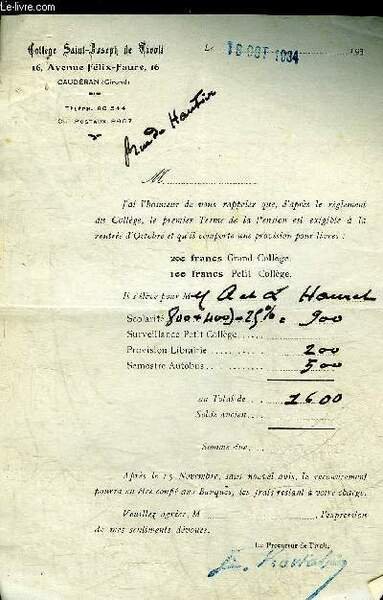 Le-livre.com
Collège Saint-Joseph de Tivoli
16, Avenue Félix-Faure, 16
CAUDÉRAN (Girond)
TÉLÉPH. 80.544
Le 18 OCT 1934 193
M
J'ai l'honneur de vous rappeler que, d'après le règlement
du Collège, le premier Terme de la Pension est exigible à la
rentrée d'Octobre et qu'il comporte une provision pour livres :
200 francs Grand Collège.
100 francs Petit Collège.
Il s'élève pour M
Scolarité (800+400)-25% = 900
Surveillance Petit Collège
Provision Librairie 200
Semestre Autobus 500
au Total de 1600
Solde ancien
Somme due
Après le 15 Novembre, sans nouvel avis, le recouvrement
pourra en être confié aux Banques, les frais restant à votre charge.
Veuillez agréer, M l'expression
de mes sentiments dévoués.
Le Procureur de Tivoli,